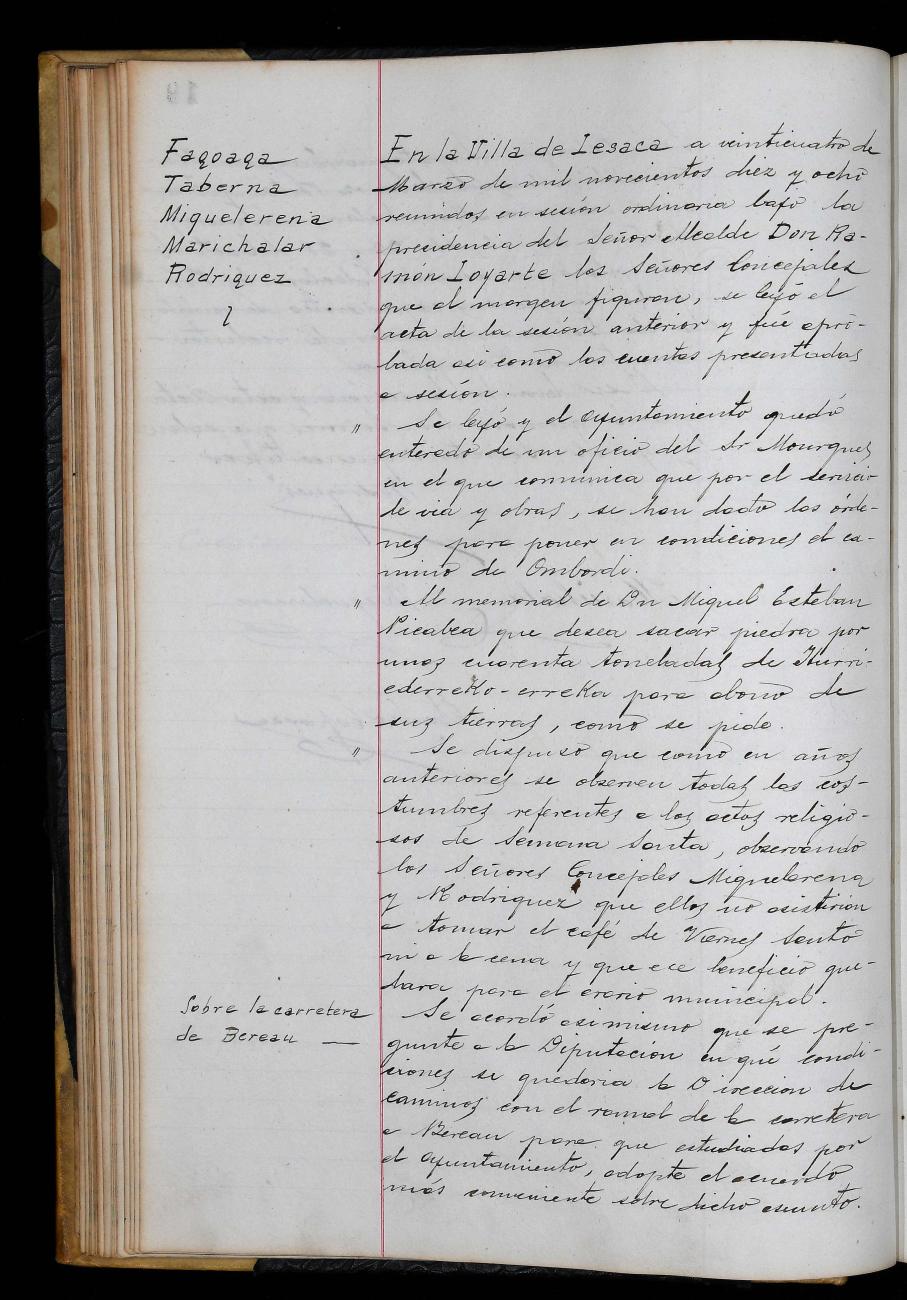 Fagoaga
Taberna
Miquelerena
Marichalar
Rodriguez
En la Villa de Lesaca a veinticuatro de
Marzo de mil novecientos diez y ocho
reunidos en sesión ordinaria bajo la
presidencia del Señor Alcalde Don Ra-
món Loyarte los Señores Concejales
que al margen figuran, se leyó el
acta de la sesión anterior y fué apro-
bada asi como las cuentas presentadas
a sesión.
" Se leyó y el Ayuntamiento quedó
enterado de un oficio del Sr Mourgues
en el que comunica que por el servicio
de via y obras, se han dado las órde-
nes para poner en condiciones el ca-
mino de Ombordi.
" Al memorial de Dn Miguel Esteban
Picabea que desea sacar piedra por
unas cuarenta toneladas de Iturri-
ederreko-erreka para abono de
sus tierras, como se pide.
" Se dispuso que como en años
anteriores se observen todas las cos-
tumbres referentes a los actos religio-
sos de Semana Santa, observando
los Señores Concejales Miquelerena
y Rodriguez que ellos no asistirian
a tomar el café de Viernes Santo
ni a la cena y que ece beneficio que-
dara para el erario municipal.
Sobre la carretera
de Bereau —
Se acordó asimismo que se pre-
gunte a la Diputación en qué condi-
ciones se quedaria la Direccion de
caminos con el ramal de la carretera
a Bereau para que estudiadas por
el Ayuntamiento, adopte el acuerdo
más conveniente sobre dicho asunto.